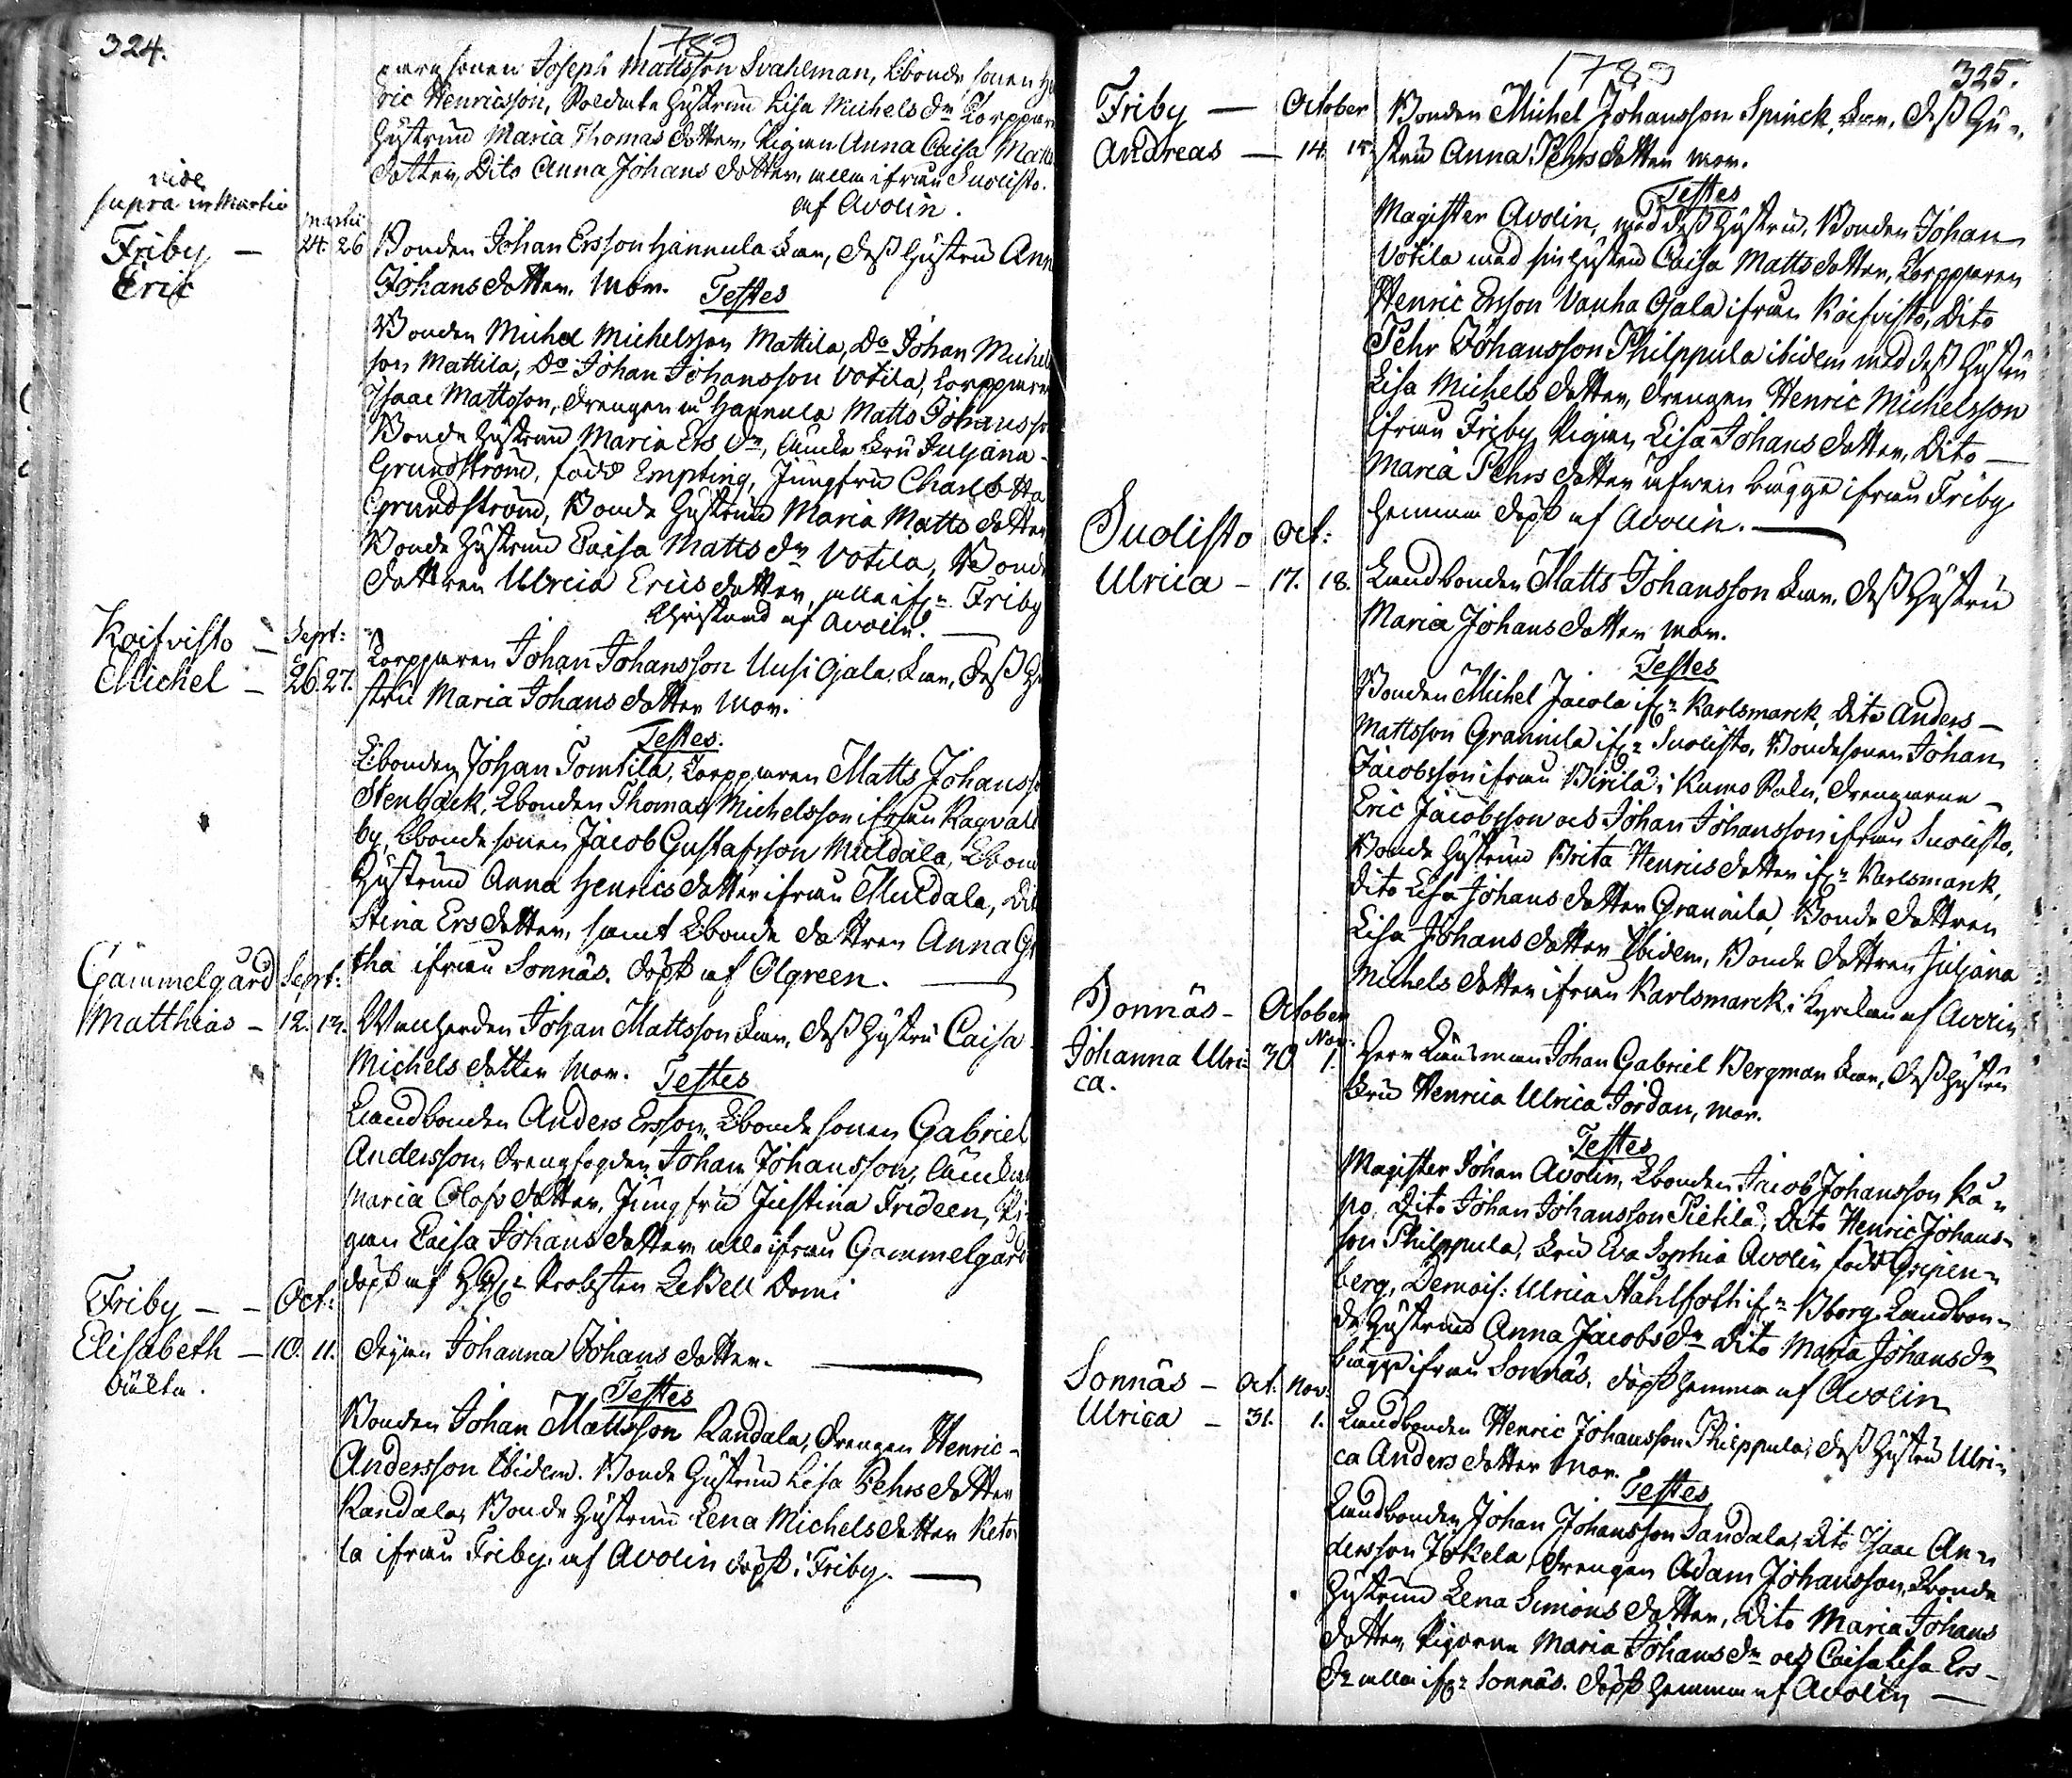 324.
1789
sonen Joseph Mattsson Svahlman, Lbonde sonen
Eric Henricsson, Soldate Hustrun Lisa Michels dr Torppare
Hustrun Maria Thomas dotter, Pigan Anna Caisa Matts
dotter, Dito Anna Johans dotter alla ifrån Suolisto.
af Avolin.
vide
supra in Martio
Martii
Friby — 24. 26 Bonden Johan Ersson Hannula Far, dess Hustru Ann
Eric Johans dotter Mor.
Testes
Bonden Michel Michelsson Mattila, Do Johan Michel
son Mattila, Do Johan Johansson Votila, Torpparen
Isaac Mattsson, drengen Hannula Matts Johansso
Bonde Hustrun Maria Ers dr, Fru Juliana
Grundström, född Empting, Jungfru Charlotta
Grundström, Bonde Hustrun Maria Matts dotter
Bonde Hustrun Caisa Matts dr Votila, Bonde
dottren Ulrica Erics dotter, alla ifr: Friby
Christnad af Avolin.
Koifvisto — Sept:
Michel — 26. 27. Torpparen Johan Johansson Uusi Ojala Far, dess Hu
stru Maria Johans dotter Mor.
Testes.
Lbonden Johan Tomtila, Torpparen Matts Johansso
Stenbäck, Lbonden Thomas Michelsson ifrån Ragvald
by, Lbonde sonen Jacob Gustafsson Muldala, Lbond
Hustrun Anna Henrics dotter ifrån Muldala, Dit
Stina Ers dotter, samt Lbonde dottren Anna Gr
tha ifrån Sonnäs. döpt af Olgreen.
Gammelgård Sept:
Matthias — 12. 13. Johan Mattsson Far, dess Hustru Caisa
Michels dotter Mor. Testes
Landbonden Anders Ersson, Lbonde sonen Gabriel
Andersson, drengfogden Johan Johansson,
Maria Olofs dotter, Jungfru Justina Frideen, Pi-
gan Caisa Johans dotter alla ifrån Gammelgård
döpt af Probsten LeBell Domi
Friby — — Oct:
Elisabeth — 10. 11. Pigan Johanna Johans dotter.
oäkta.
Testes
Bonden Johan Mattsson Randala, drengen Henric
Andersson Ibidem. Bonde Hustrun Lisa Pehrs dotter
Randala, Bonde Hustrun Lena Michels dotter Keto-
la ifrån Friby. af Avolin döpt i Friby.
1789
325.
Friby — October Bonden Michel Johansson Spinck, Far, dess Hu-
Andreas — 14. 15. stru Anna Pehrs dotter Mor.
Testes
Magister Avolin, med dess Hustru, Bonden Johan
Votila med sin Hustru Caisa Matts dotter, Torpparen
Henric Ersson Vanha Ojala ifrån Koifvisto, Dito
Pehr Johansson Philppula ibidem med dess Hustru
Lisa Michels dotter, drengen Henric Michelsson
ifrån Friby, Pigan Lisa Johans dotter, Dito —
Maria Pehrs dotter äfven bägge ifrån Friby
hemma döpt af Avolin.
Suolisto Oct:
Ulrica — 17. 18. Landbonden Matts Johansson Far, dess Hustru
Maria Johans dotter Mor.
Testes
Bonden Michel Jacola ifr: Karlsmarck, Dito Anders —
Mattsson Grannila ifr: Suolisto, Bondesonen Johan
Jacobsson ifrån Virilä i Kumo Sokn, drengarne —
Eric Jacobsson och Johan Johansson ifrån Suolisto,
Bonde Hustrun Brita Henrics dotter ifr: Karlsmarck,
Dito Lisa Johans dotter Grannila, Bonde dottren
Lisa Johans dotter Ibidem, Bonde dottren Juliana
Michels dotter ifrån Karlsmarck, i Kyrckan af Avolin
Sonnäs — October
Nov:
Johanna Ulri- 30 1. Herr Länsman Johan Gabriel Bergman Far, dess Hustru
ca. Fru Henrica Ulrica Jordan, Mor.
Testes
Magister Johan Avolin, Lbonden Jacob Johansson Kä-
po, Dito Johan Johansson Pietilä, Dito Henric Johans-
son Philppula, Fru Eva Sophia Avolin född Gripen-
berg, Demois: Ulrica Stahlfoth ifr: Bborg. Landbon-
de Hustrun Anna Jacobs dr Dito Maria Johans dr
bägge ifrån Sonnäs. döpt hemma af Avolin
Sonnäs — Oct. Nov:
Ulrica — 31. 1. Landbonden Henric Johansson Philppula, dess Hustru Ulri-
ca Anders dotter Mor.
Testes
Landbonden Johan Johansson Sandala, Dito Isaac An-
dersson Jokela, drengen Adam Johansson, Lbonde
Hustrun Lena Simons dotter, Dito Maria Johans
dotter, Pigorne Maria Johans dr och Caisa Lisa Ers-
dr alla ifr: Sonnäs. döpt hemma af Avolin —